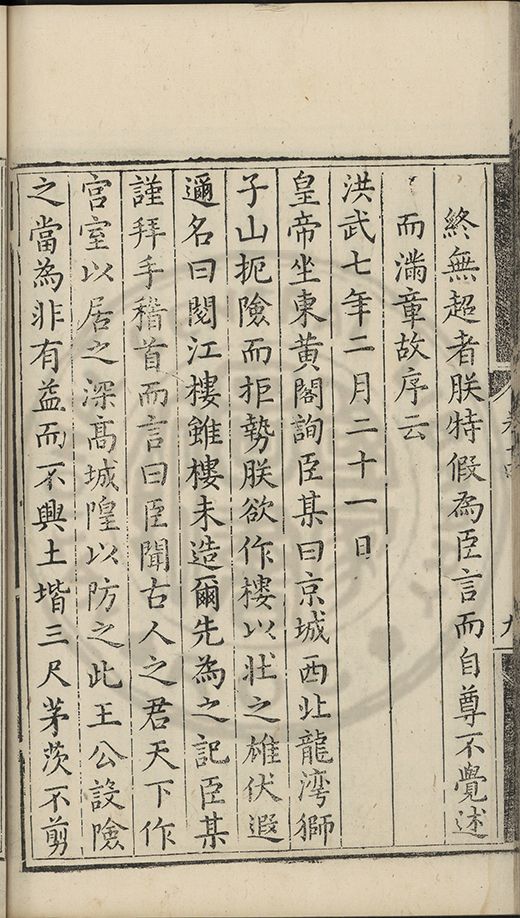 終無超者朕特假為臣言而自尊不覺述
而滿章故序云
洪武七年二月二十一日
皇帝坐東黃閣詢臣某曰京城西北龍灣獅
子山扼險而拒勢朕欲作樓以壯之雄伏遐
邇名曰閱江樓雖樓未造爾先為之記臣某
謹拜手稽首而言曰臣聞古人之君天下作
宮室以居之深高城隍以防之此王公設險
之當為非有益而不興土堦三尺茅茨不剪